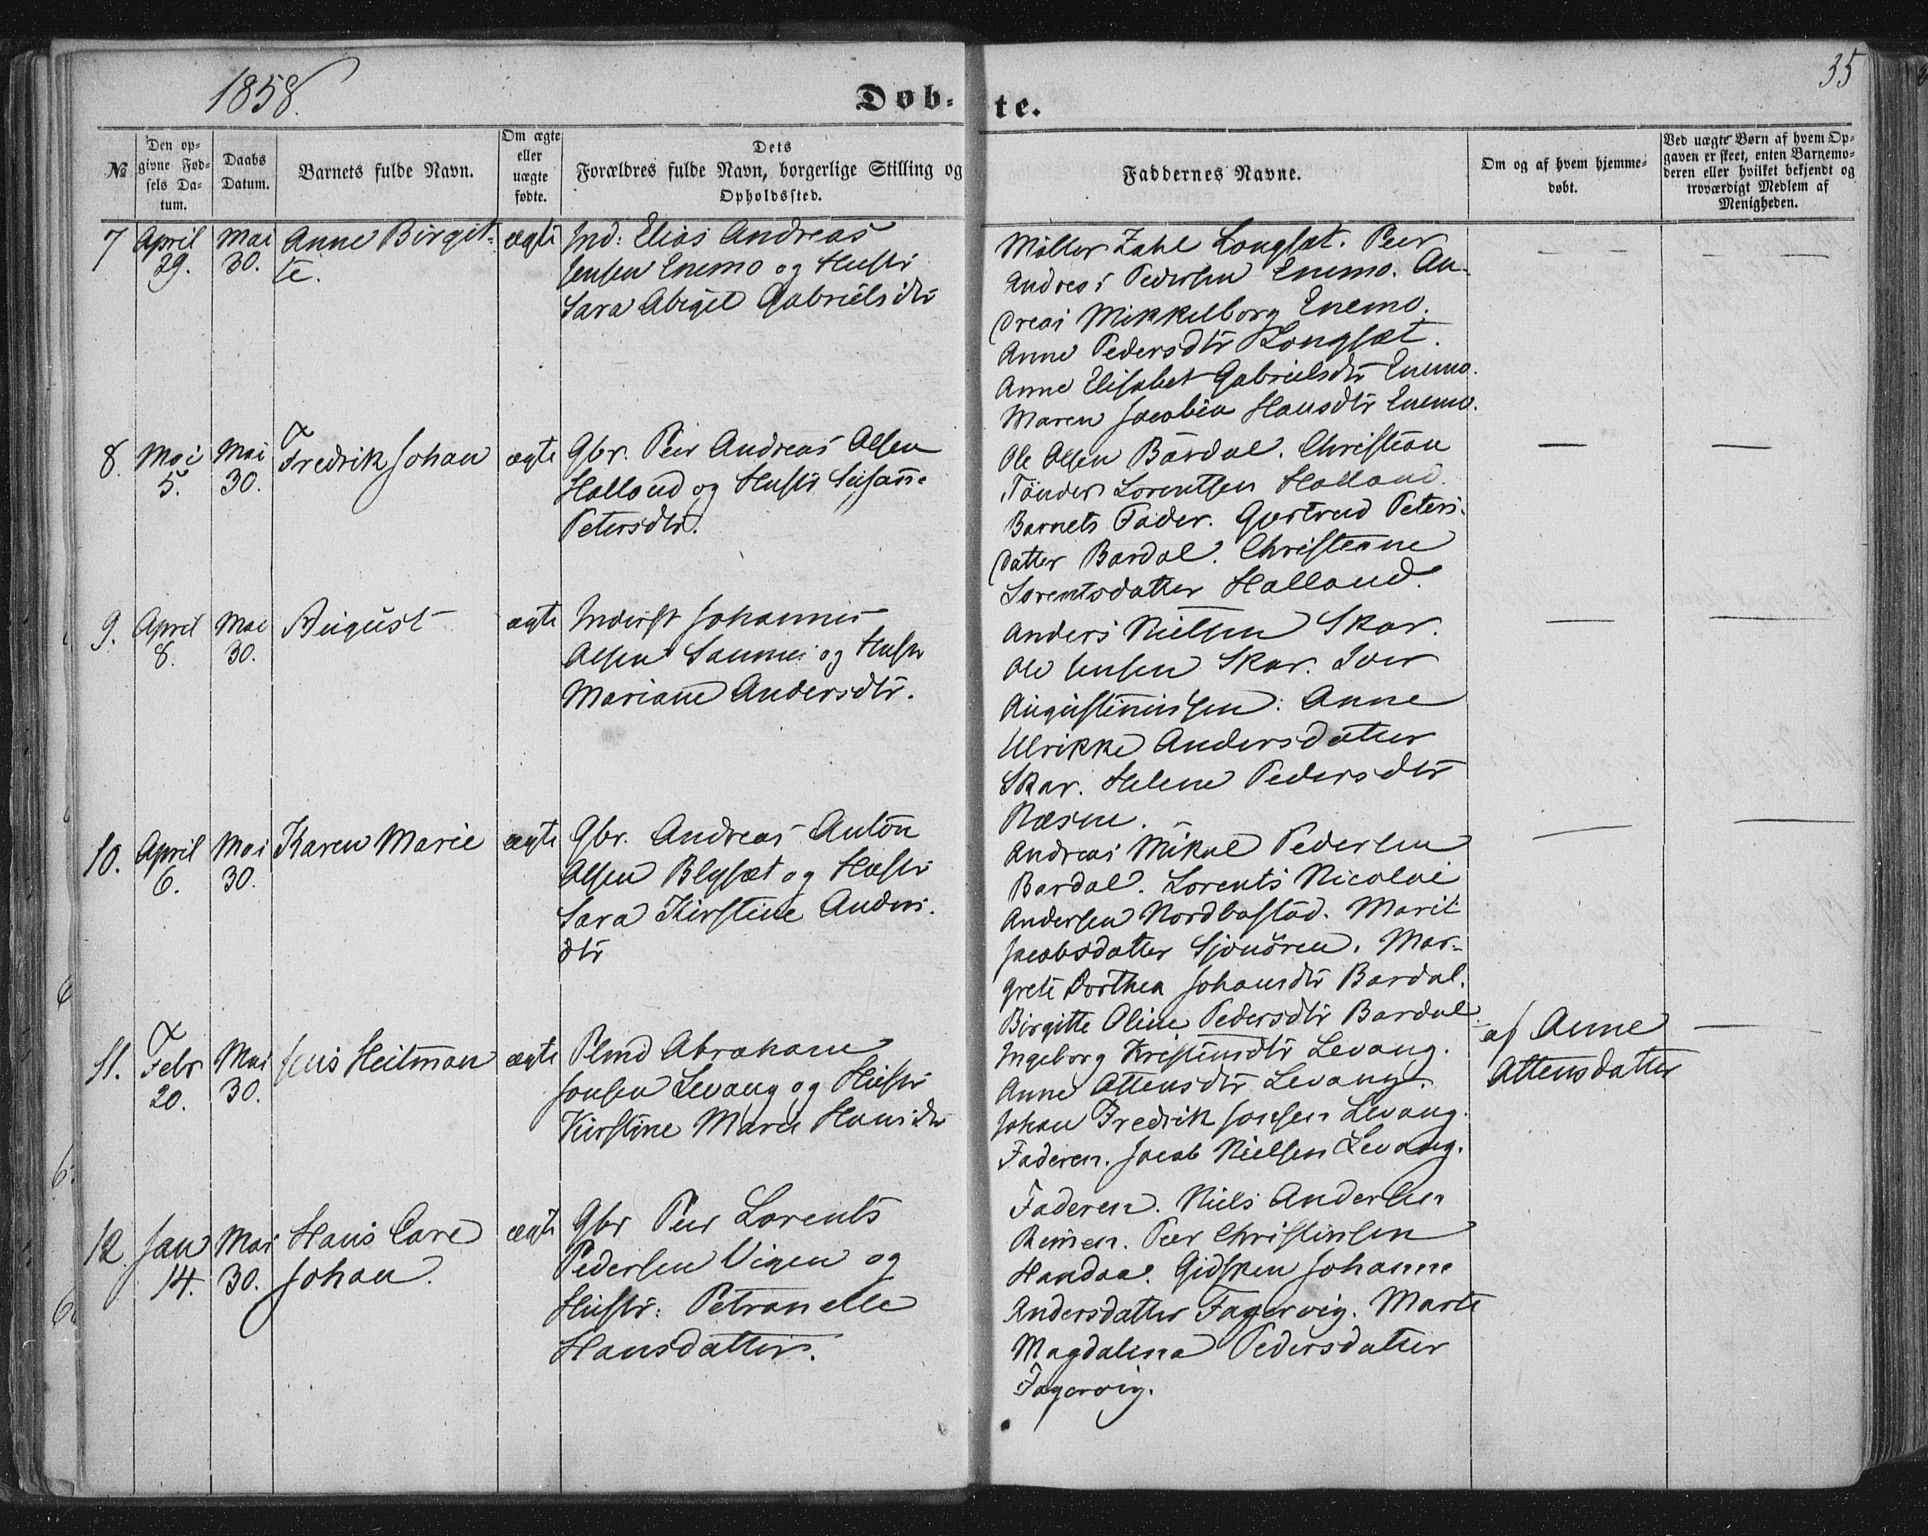 1858.
Døb-
te.
35
№
Den op-
givne Fød-
sels Da-
tum.
Daabs
Datum.
Barnets fulde Navn.
Om ægte
eller
uægte
fødte.
Dets
Forældres fulde Navn, borgerlige Stilling og
Opholdssted.
Faddernes Navne.
Om og af hvem hjemme-
døbt.
Ved uægte Børn af hvem Op-
gaven er skeet, enten Barnemo-
deren eller hvilket bekjendt og
troværdigt Medlem af
Menigheden.
7 April 29. Mai 30. Anne Birgit- ægte Ind: Elias Andreas
te. Jensen Enemo og Hustr
Sara Abigel Gabrielsdtr
Møller Zahl Longset. Peer
Andreas Pedersen Enemo. An-
dreas Mikkelborg Enemo.
Anne Pedersdtr Longset.
Anne Elisabet Gabrielsdtr Enemo.
Maren Jacobin Hansdtr Enemo.
8. Mai 5. Mai 30. Fredrik Johan ægte Gbr. Peer Andreas Olsen
Halland og Hustr Susan-
Petersdtr.
Ole Olsen Bardal. Christian
Tønder Lorentsen Halland.
Barnets Fader. Gjertrud Peters-
datter Bardal. Christianne
Lorentsdatter Halland.
9. April 8. Mai 30. August ægte Inderst Johannes
Olsen Sannes og Hustr
Mariane Andersdtr.
Anders Nielsen Skar.
Ole Jensen Skar. Iver
Augustinusen. Anne
Ulrikke Andersdatter
Skar. Helene Pedersdtr
Næsne.
10. April 6. Mai 30. Karen Marie ægte Gbr. Andreas Anton
Olsen Blysæt og Hustr
Sara Kirstine Anders-
dtr
Andreas Mikal Pedersen
Bardal. Lorents Nicolai
Andersen Nordbostad. Marit
Jacobsdatter Sjonøren. Mar-
grete Dorthea Johansdtr Bardal.
Birgitte Oline Pedersdtr Bardal.
11. Febr 20. Mai 30. Jens Heitman ægte Plmd Abraham
Jonsen Levang og Hustr
Kirstine Marie Hansdtr
Ingeborg Kristensdtr Levang.
Anne Ottensdtr Levang.
Johan Fredrik Jonsen Levang.
Faderen. Jacob Nielsen Levang.
af Anne
Attensdatter
12. Jan 14. Mai 30. Hans Care ægte Gbr Peer Lorents
Johan. Pedersen Vigen og
Hustr: Petronelle
Hansdatter.
Faderen. Niels Andersen
Remen. Peer Christensen
Handaa. Gidsken Johanne
Andersdatter Fagervig. Marte
Magdalena Pedersdatter
Fagervig.